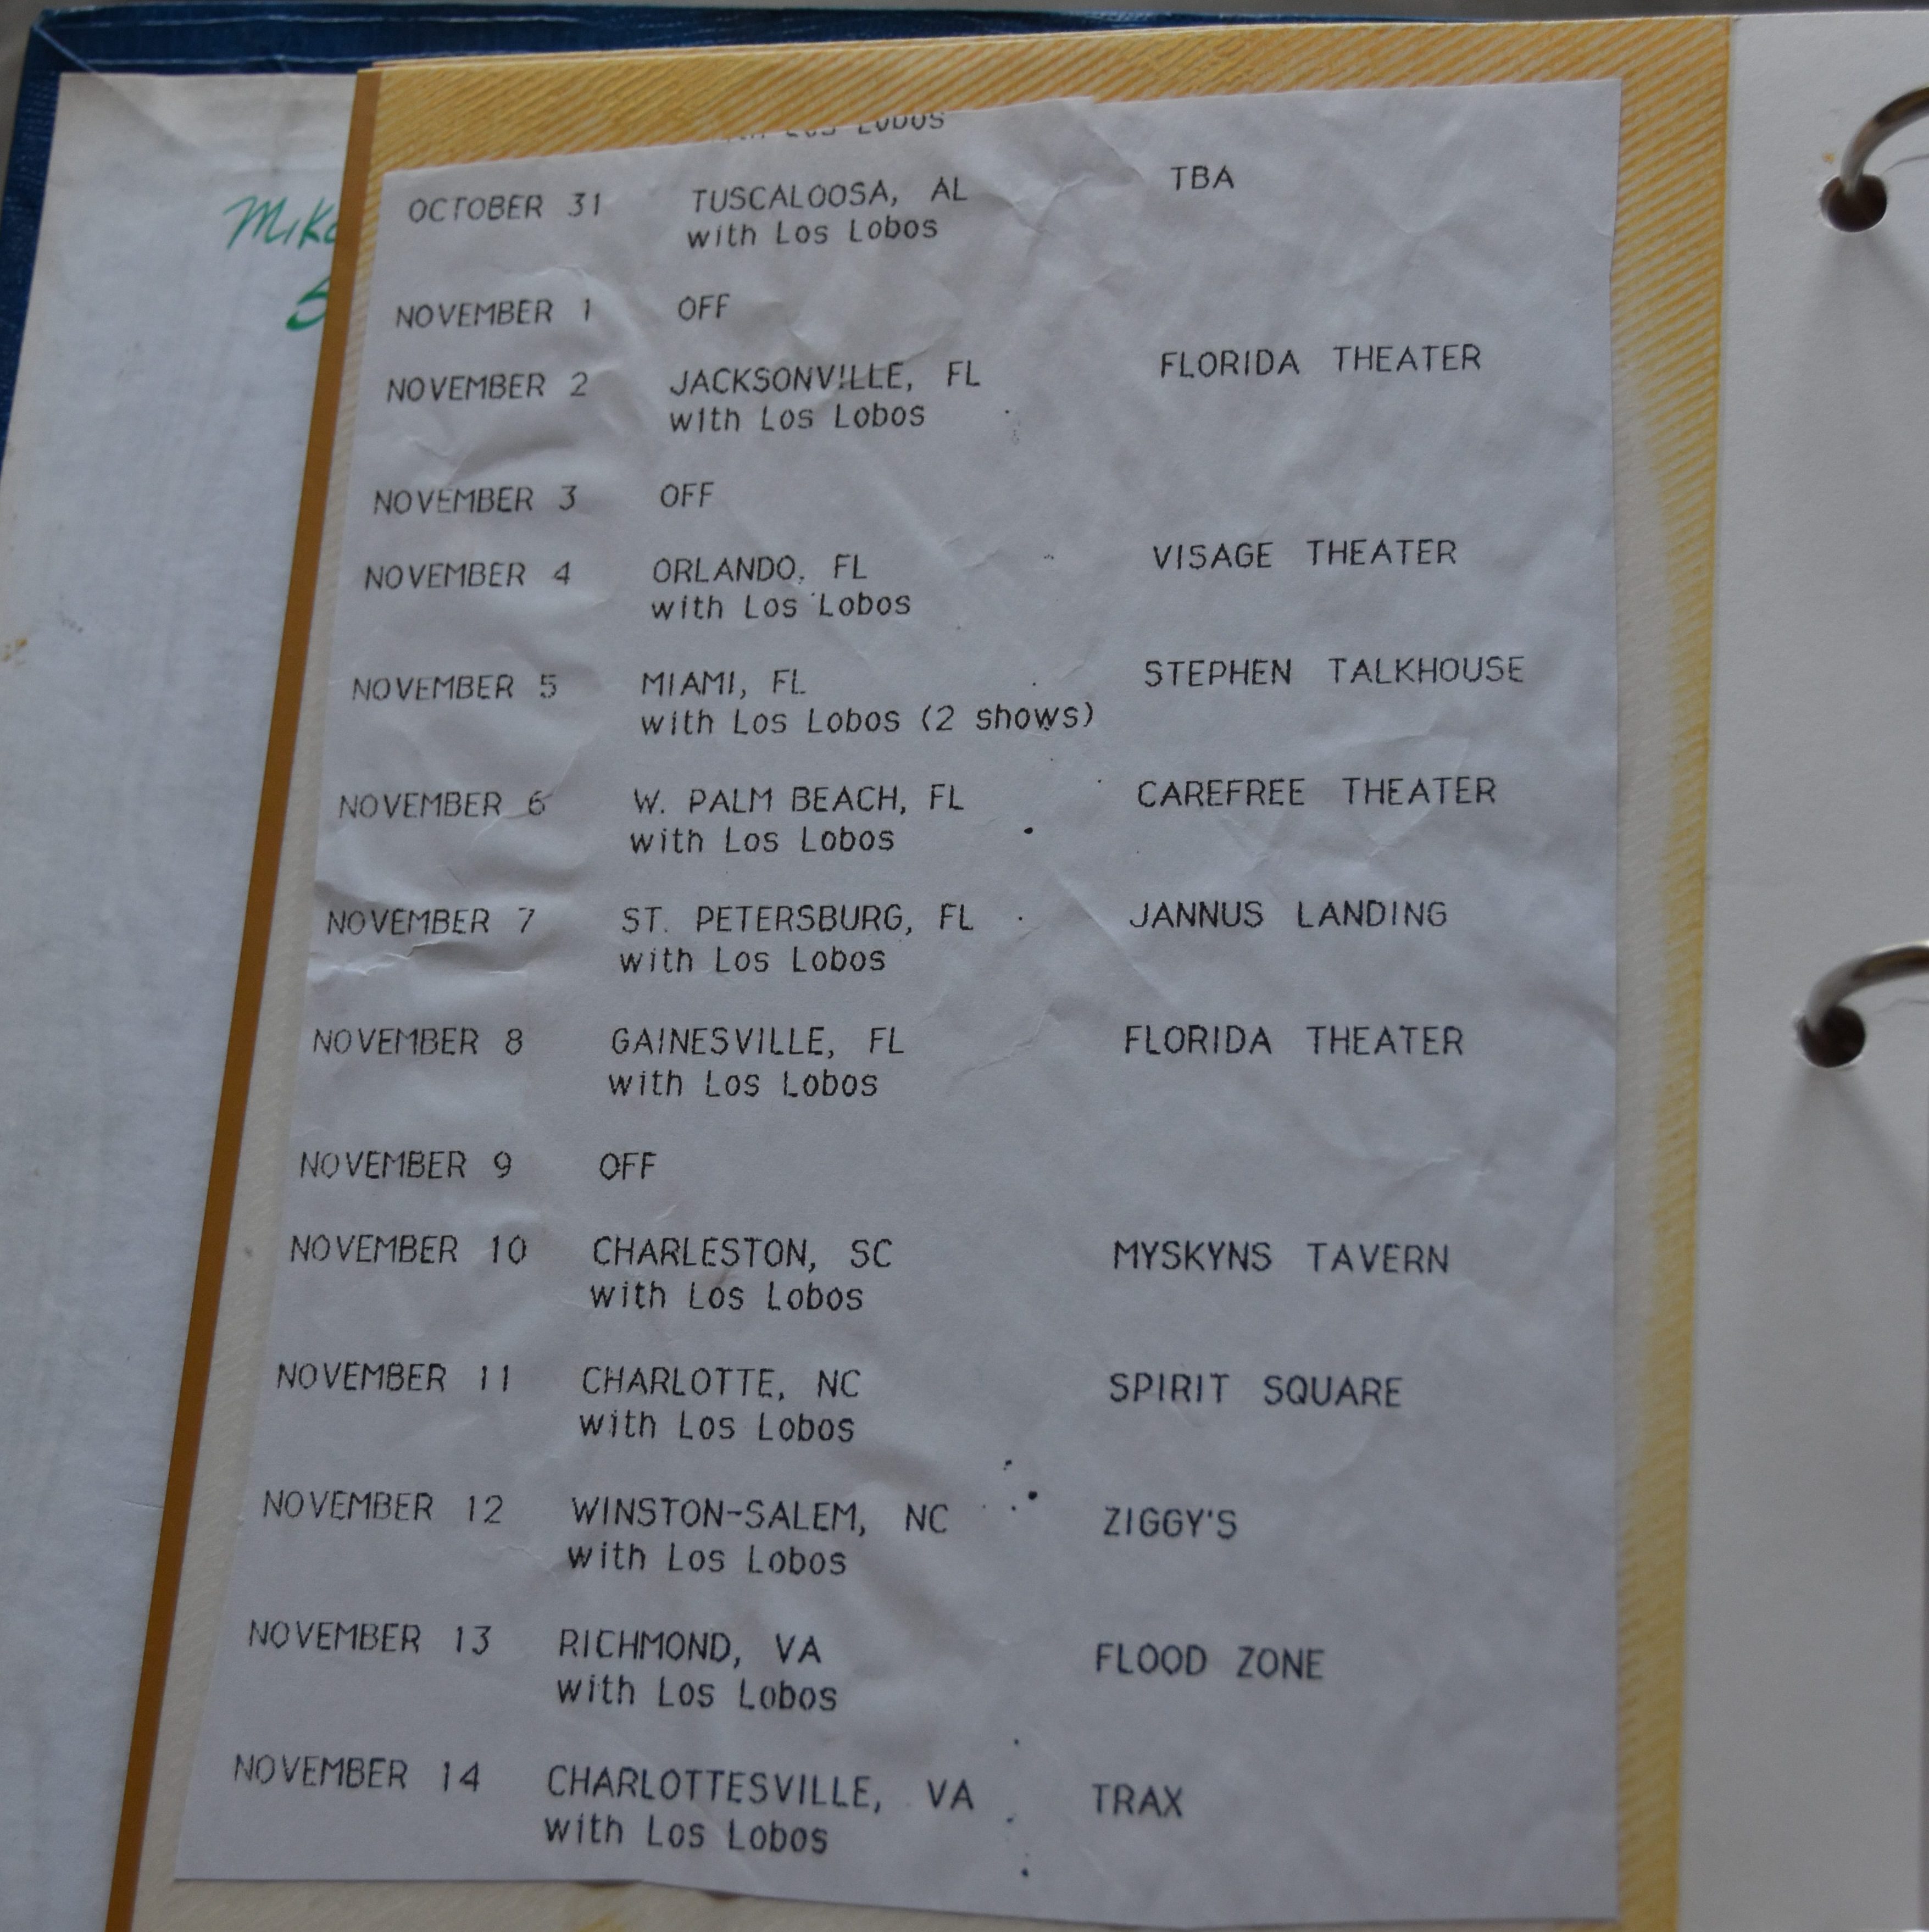 Los Lobos
OCTOBER 31 TUSCALOOSA, AL TBA
with Los Lobos
NOVEMBER 1 OFF
NOVEMBER 2 JACKSONVILLE, FL FLORIDA THEATER
with Los Lobos
NOVEMBER 3 OFF
NOVEMBER 4 ORLANDO, FL VISAGE THEATER
with Los Lobos
NOVEMBER 5 MIAMI, FL STEPHEN TALKHOUSE
with Los Lobos (2 shows)
NOVEMBER 6 W. PALM BEACH, FL CAREFREE THEATER
with Los Lobos
NOVEMBER 7 ST. PETERSBURG, FL JANNUS LANDING
with Los Lobos
NOVEMBER 8 GAINESVILLE, FL FLORIDA THEATER
with Los Lobos
NOVEMBER 9 OFF
NOVEMBER 10 CHARLESTON, SC MYSKYNS TAVERN
with Los Lobos
NOVEMBER 11 CHARLOTTE, NC SPIRIT SQUARE
with Los Lobos
NOVEMBER 12 WINSTON-SALEM, NC ZIGGY'S
with Los Lobos
NOVEMBER 13 RICHMOND, VA FLOOD ZONE
with Los Lobos
NOVEMBER 14 CHARLOTTESVILLE, VA TRAX
with Los Lobos